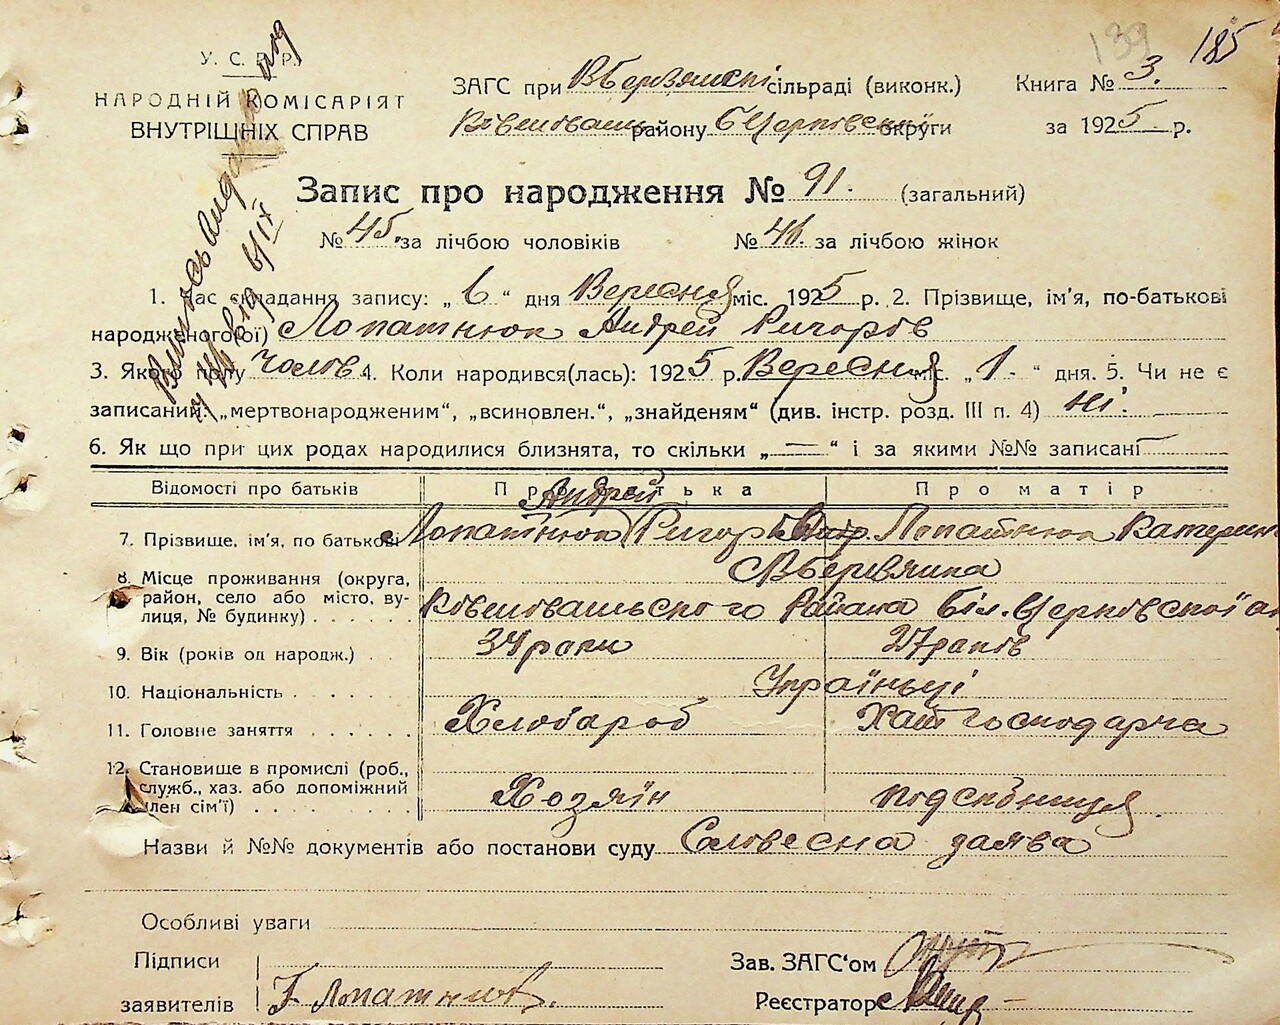 139 185
У. С. Р. Р.
НАРОДНІЙ КОМІСАРІЯТ
ВНУТРІШНІХ СПРАВ
ЗАГС при сільраді (виконк.)
Книга № 3.
району Б Церковської округи
за 1925 р.
Запис про народження № 91. (загальний)
№ 45. за лічбою чоловіків № 46. за лічбою жінок
1. Час складання запису: „6“ дня Вересня міс. 1925 р. 2. Прізвище, ім'я, по-батькові
народженого(ої) Лопатнюк Андрей Ригоров
3. Якого полу Чолов. 4. Коли народився(лась): 1925 р. Вересня міс. „1.“ дня. 5. Чи не є
записаний: „мертвонародженим“, „всиновлен.“, „знайденям“ (див. інстр. розд. III п. 4) Ні.
6. Як що при цих родах народилися близнята, то скільки „—“ і за якими №№ записані
Відомості про батьків Про батька Про матір
Андрей
7. Прізвище, ім'я, по батькові Лопатнюк Ригор Лопатнюк Катерин
8. Місце проживання (округа,
район, село або місто, ву-
лиця, № будинку) Района Біл. Церковської
9. Вік (років од народж.) 34 роки 27 років
10. Національність Україньці
11. Головне заняття Хлобароб Хатн господарча
12. Становище в промислі (роб.,
служб., хаз. або допоміжний
член сім'ї) Хозяїн
Назви й №№ документів або постанови суду Словесна заява
Особливі уваги
Підписи
заявителів Г. Лопатнюк.
Зав. ЗАГС‘ом
Реєстратор